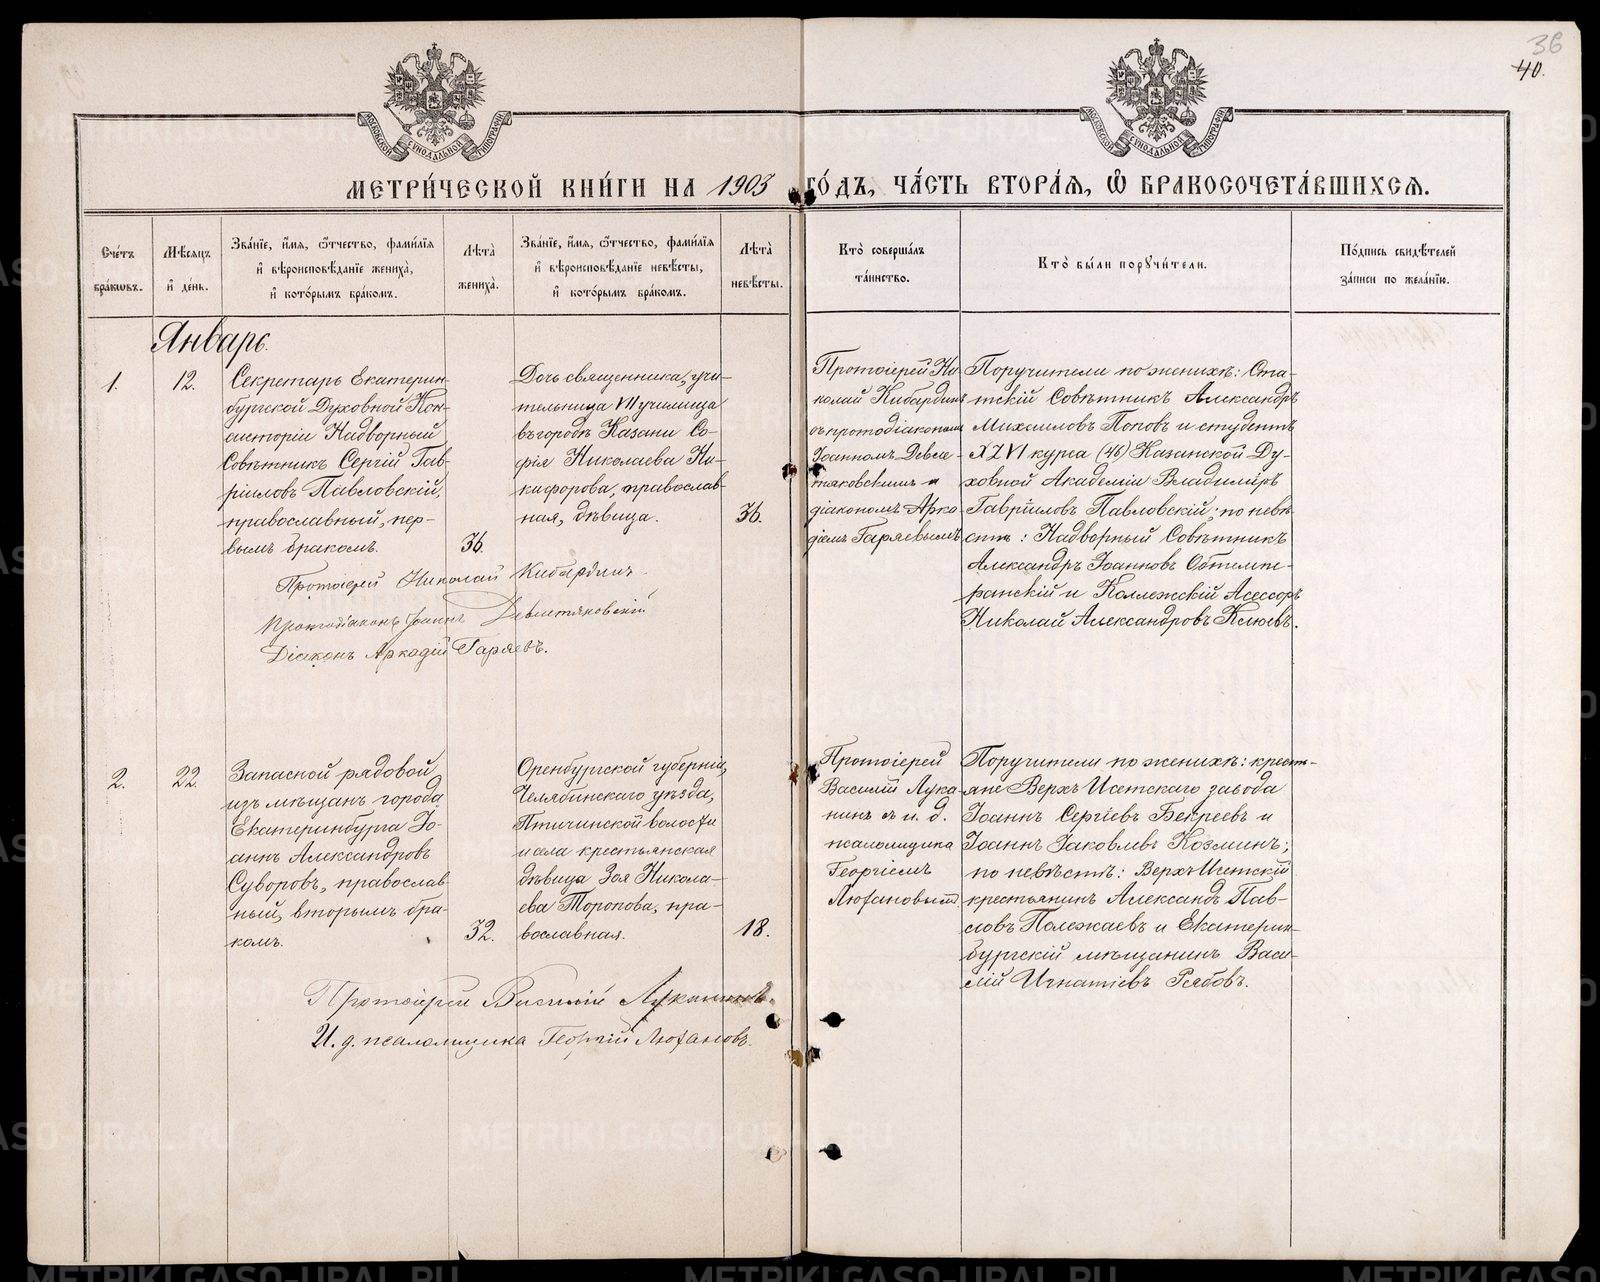 36
40.
МЕТРИ́ЧЕСКОЙ КНИ́ГИ НА 1903 ГО́ДЪ, ЧА́СТЬ ВТОРА́Я, Ѡ БРАКОСОЧЕТА́ВШИХСЯ.
Сче́тъ
бра́кωвъ.
Мѣ́сяцъ
и҆ де́нь.
Зва́нїе, и҆́мя, ѻ҆́тчество, фами́лїя
и҆ вѣроисповѣ́данїе жениха̀,
и҆ кото́рымъ бра́комъ.
Лѣ́та
жениха̀.
Зва́нїе, и҆́мя, ѻ҆́тчество, фами́лїя
и҆ вѣроисповѣ́данїе невѣ́сты,
и҆ кото́рымъ бра́комъ.
Лѣ́та
невѣ́сты.
Кто̀ соверша́лъ
та́инство.
Кто̀ бы́ли порꙋчи́тели.
По́дпись свидѣ́телей
за́писи по жела́нїю.
Январь.
1.
12.
Секретарь Екатерин-
бургской Духовной Кон-
систоріи Надворный
Совѣтникъ Сергій Гав-
ріиловъ Павловскій,
православный, пер-
вымъ бракомъ.
36.
Дочь священника, учи-
тельница VII училища
въ городѣ Казани Со-
фія Николаева Ни-
кифорова, православ-
ная, дѣвица.
36.
Протоіерей Ни-
колай Кибардинъ
съ протодіакономъ
Іоанномъ Девле-
тяковскимъ и
діакономъ Арка-
діемъ Гаряевымъ
Поручители по женихѣ: Ста-
тскій Совѣтникъ Александръ
Михаиловъ Поповъ и студентъ
XLVI курса (46) Казанской Ду-
ховной Академіи Владиміръ
Гавріиловъ Павловскій; по невѣ-
стѣ: Надворный Совѣтникъ
Александръ Іоанновъ Обтемпе-
ранскій и Коллежскій Асессоръ
Николай Александровъ Клюевъ.
Протоіерей Николай Кибардинъ
Протодіаконъ Іоаннъ Девлетяковскій
Діаконъ Аркадій Гаряевъ.
2.
22.
Запасной рядовой
изъ мѣщанъ города
Екатеринбурга Іо-
аннъ Александровъ
Суворовъ, православ-
ный, вторымъ бра-
комъ.
32.
Оренбургской губерніи,
Челябинскаго уѣзда,
Птичинской волости
и села крестьянская
дѣвица Зоя Никола-
ева Торопова, пра-
вославная.
18.
Протоіерей
Василій Лука-
нинъ съ и. д.
псаломщика
Георгіемъ
Люхановымъ
Поручители по женихѣ: кресть-
яне Верхъ Исетскаго завода
Іоаннъ Сергіевъ Бекреевъ и
Іоаннъ Іаковлевъ Козминъ;
по невѣстѣ: Верхъ Исетскій
крестьянинъ Александръ Пав-
ловъ Полежаевъ и Екатерин-
бургскій мѣщанинъ Васи-
лій Игнатіевъ Рябовъ.
Протоіерей Василій Луканинъ.
И. д. псаломщика Георгій Люхановъ.
METRIKI.GASO-URAL.RU